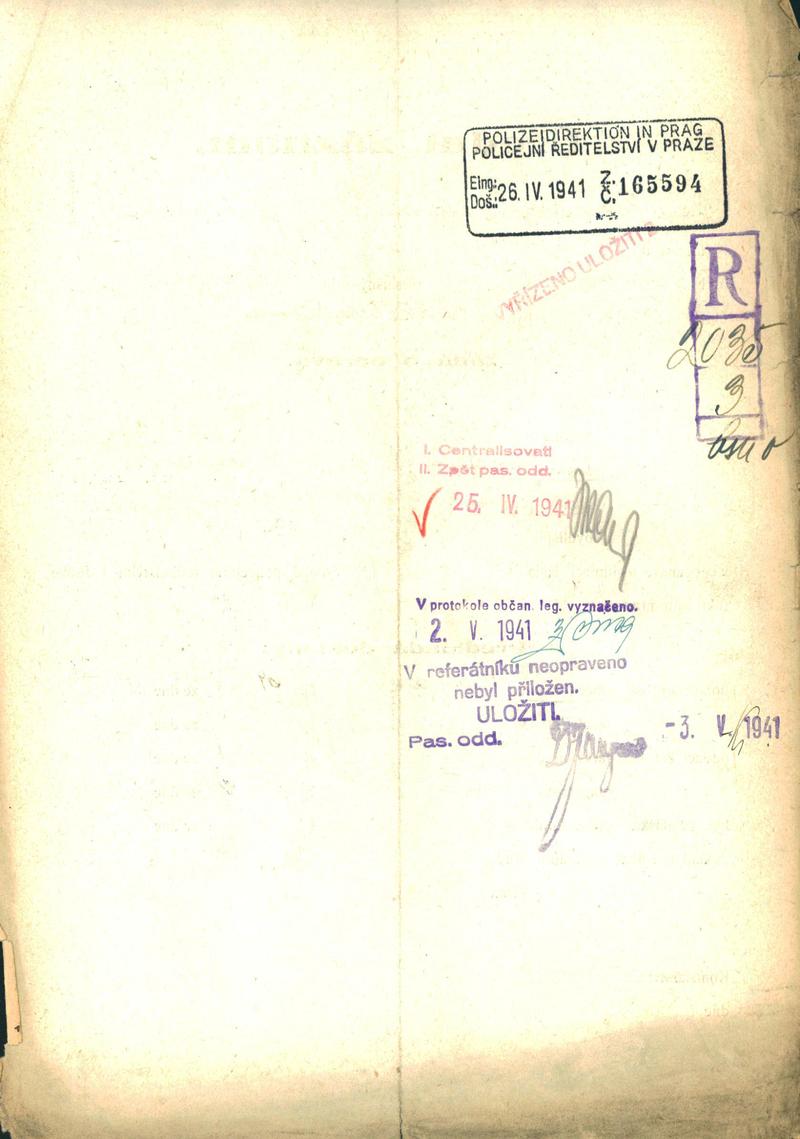 POLIZEIDIREKTION IN PRAG
POLICEJNÍ ŘEDITELSTVÍ V PRAZE
Eing.: Doš.: 26. IV. 1941 Z. Č. 165594
VYŘÍZENO ULOŽITI
R
2035
3
I. Centralisovati
II. Zpět pas. odd.
25. IV. 1941
V protokole občan. leg. vyznačeno.
2. V. 1941
V referátníku neopraveno
nebyl přiložen.
ULOŽITI.
Pas. odd. -3. V. 1941